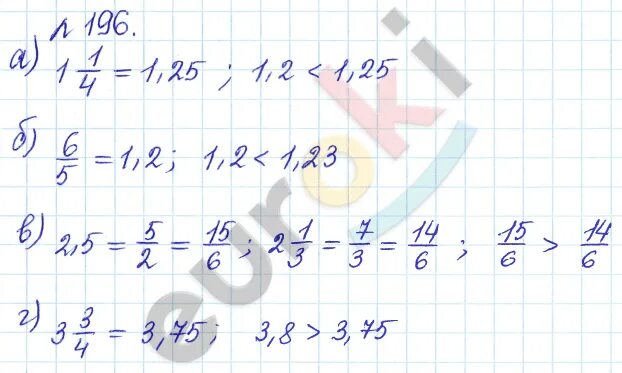 № 196.
а) 1 1/4 = 1,25 ; 1,2 < 1,25
б) 6/5 = 1,2 ; 1,2 < 1,23
в) 2,5 = 5/2 = 15/6 ; 2 1/3 = 7/3 = 14/6 ; 15/6 > 14/6
г) 3 3/4 = 3,75 ; 3,8 > 3,75
euroki